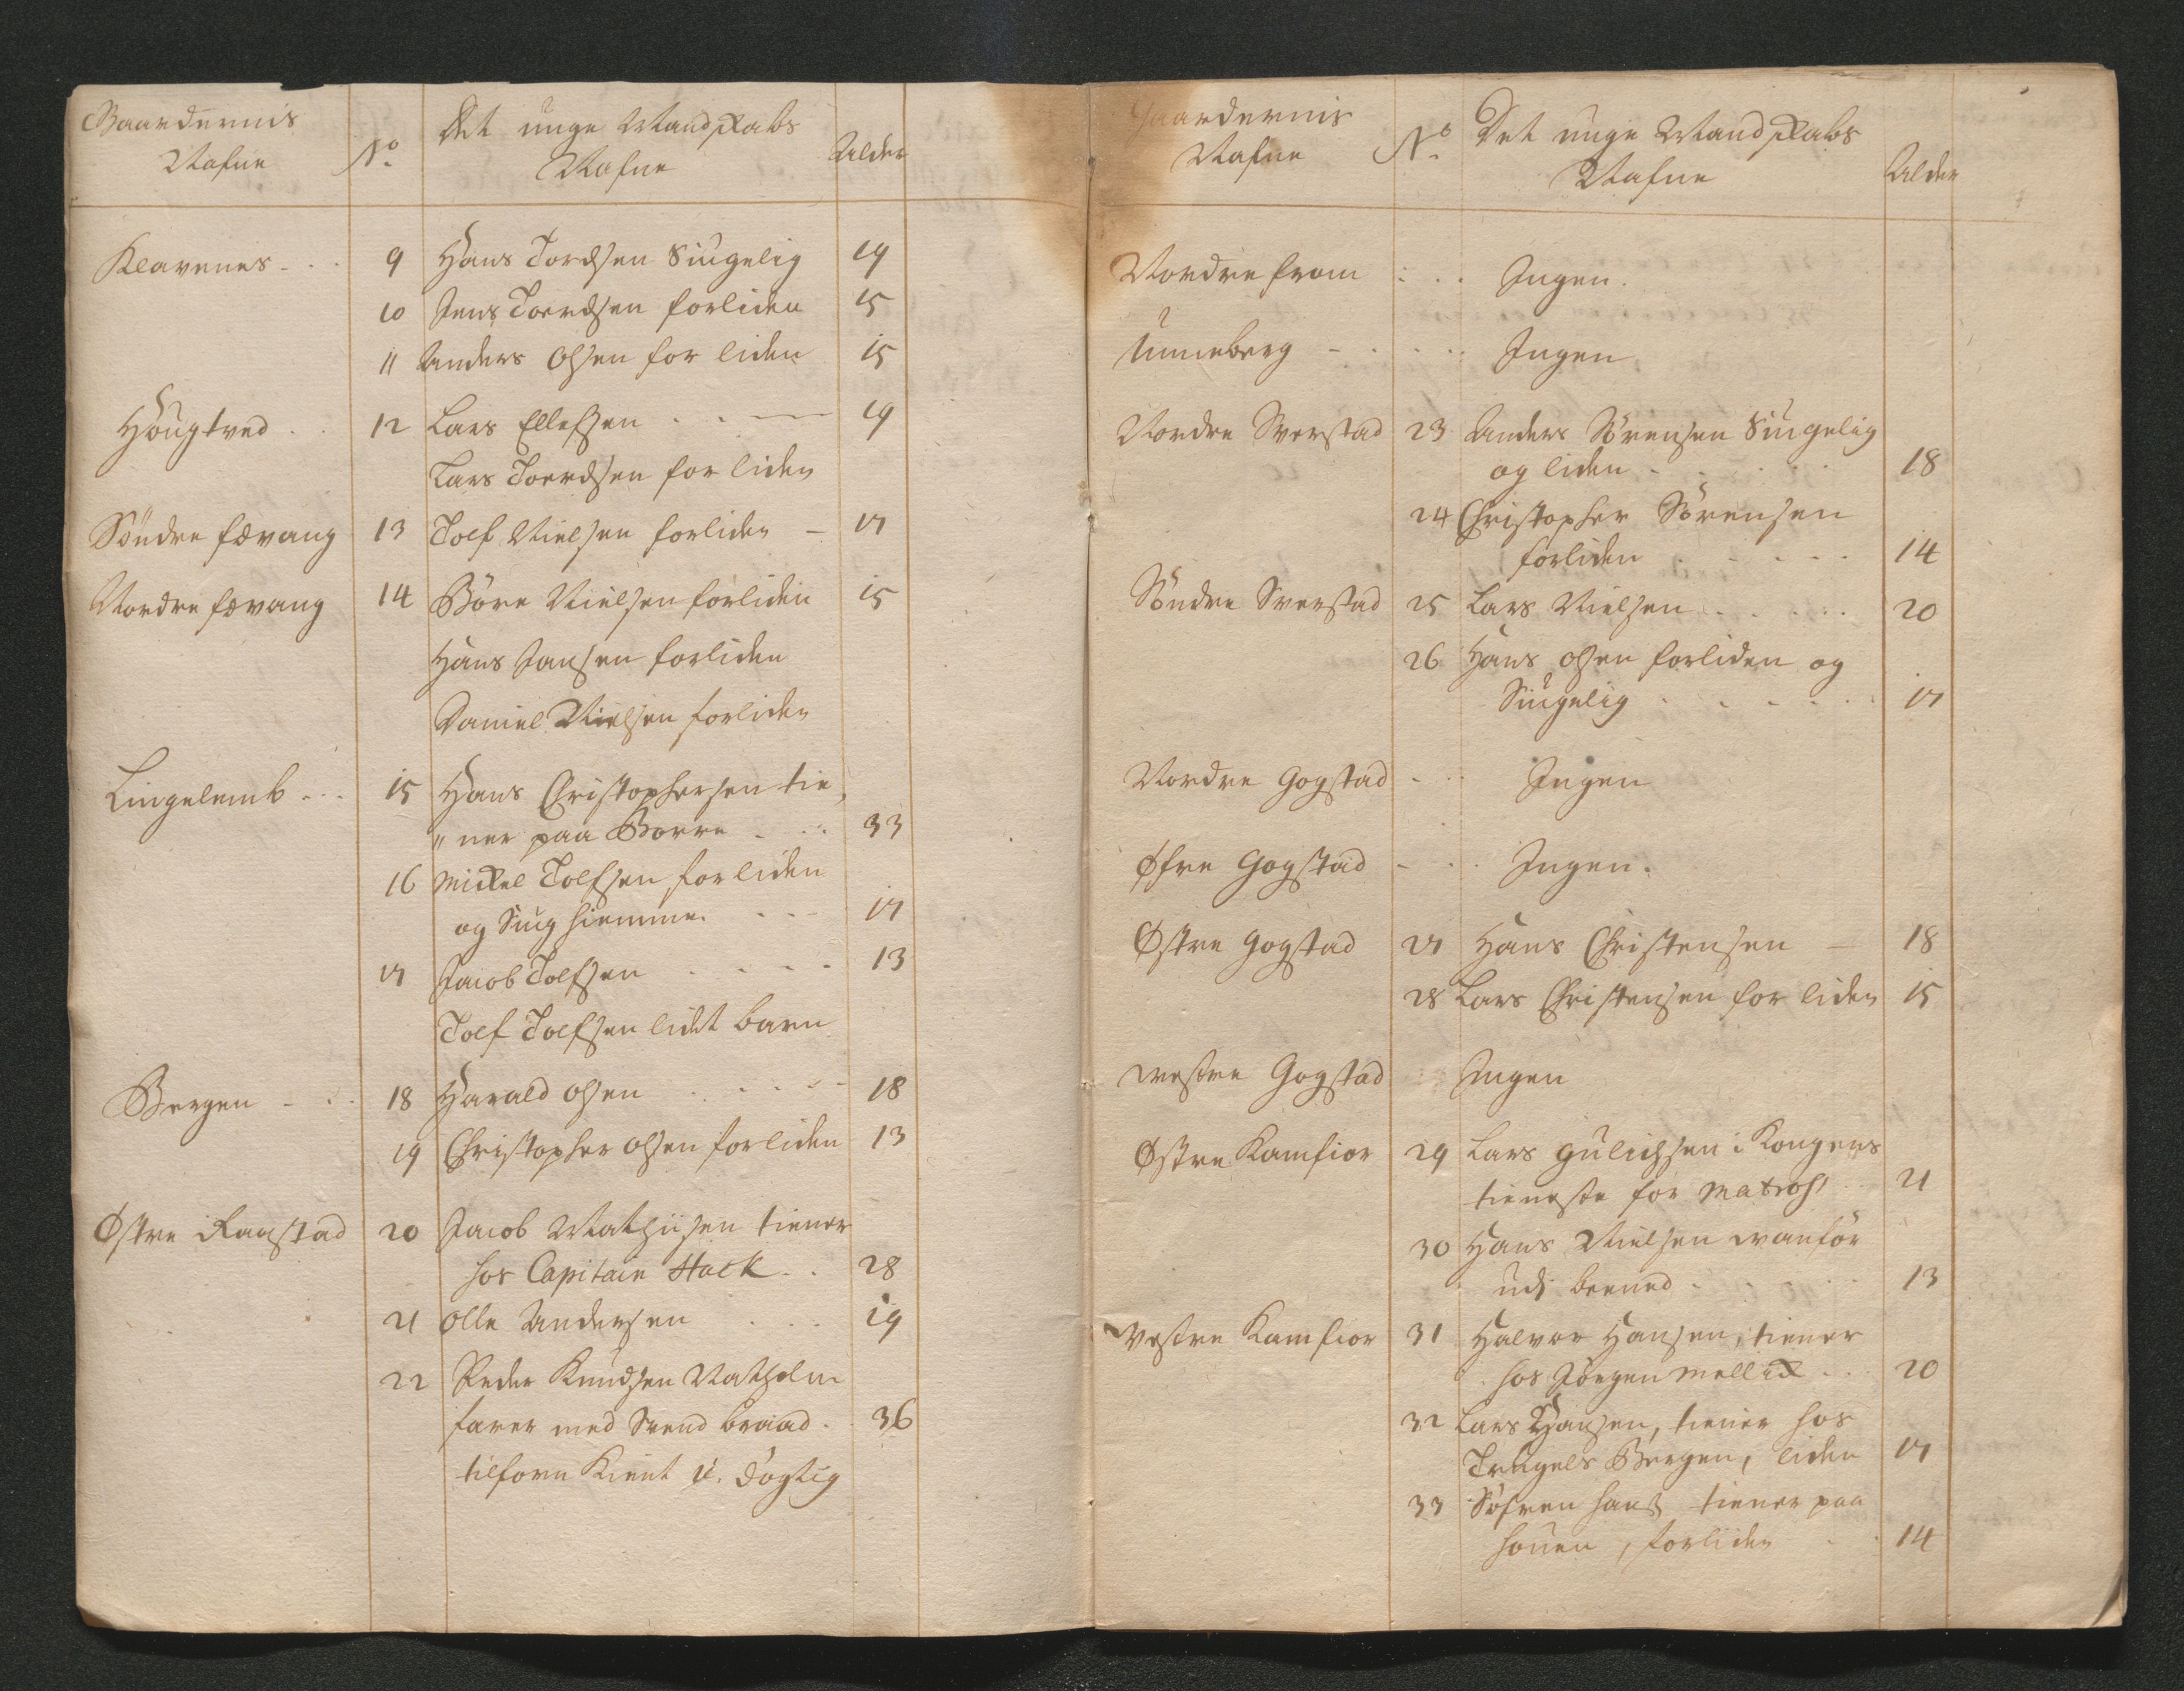 Gaardernis Nafne
No
Det unge Mandskabs Nafne
Alder
Klavenes - . . 9 Hans Tordsen Siugelig 19
10 Jens Toerdsen forliden 15
11 Anders Olsen for liden 15
Hougtved . . 12 Lars Ellefsen . . — 19
Lars Toerdsen for liden
Söndre fævang 13 Tolf Nielsen forliden — 17
Nordre fævang 14 Böre Nielsen forliden 15
Hans Jansen forliden
Daniel Nielsen forliden
Lingelemb . . . 15 Hans Christophersen tie,
„ ner paa Borre . . . 33
16 Mickel Tolfsen forliden
og Siug hiemme . . - 17
17 Jacob Tolfsen . . . . 13
Tolf Tolfsen lidet barn
Bergen - . . 18 Harald Olsen . . . . 18
19 Christopher Olsen forliden 13
Østre Raastad 20 Jacob Mathiisen tiener
hos Capitain Hack . . 28
21 Olle Andersen . . . 19
22 Peder Knudsen Natholm
farer med Svend braad . 36
tilforn Kient u. dogtig
Gaardernis Nafne
No
Det unge Mandskabs Nafne
Alder
Nordre from . . . Ingen.
Unneberg - . . . Ingen
Nordre Sverstad 23 Anders Sörensen Siugelig
og liden . . . . 18
24 Christopher Sörensen
forliden . . . . 14
Söndre Sverstad 25 Lars Nielsen . . . . 20
26 Hans Olsen forliden og
Siugelig . . . . . 17
Nordre Gogstad - . . Ingen
Øfre Gogstad - . . Ingen.
Østre Gogstad 27 Hans Christensen — 18
28 Lars Christensen for liden 15
westre Gogstad Ingen
Østre Kamfior 29 Lars Gulichsen i Kongens
tieneste for Matros . . 21
30 Hans Nielsen wanför
udj beened . . . . 13
Vestre Kamfior 31 Halvor Hansen, tiener
hos Jörgen Mellix . . . 20
32 Lars Hansen, tiener hos
Trugels Bergen, liden 17
33 Söfren Hans. tiener paa
houen, forliden . . 14